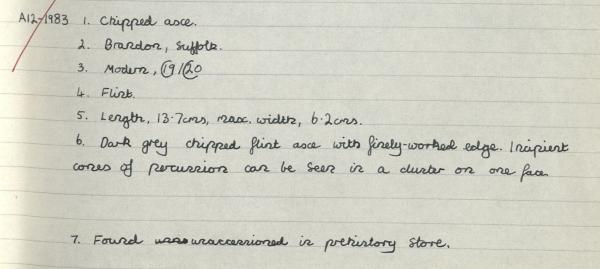 A12-1983 1. Chipped axe.
2. Brandon, Suffolk.
3. Modern, C19/C20
4. Flint.
5. Length, 13.7cms, max. width, 6.2cms.
6. Dark grey chipped flint axe with finely-worked edge. Incipient
cones of percussion can be seen in a cluster on one face.
7. Found unaccessioned in prehistory store.